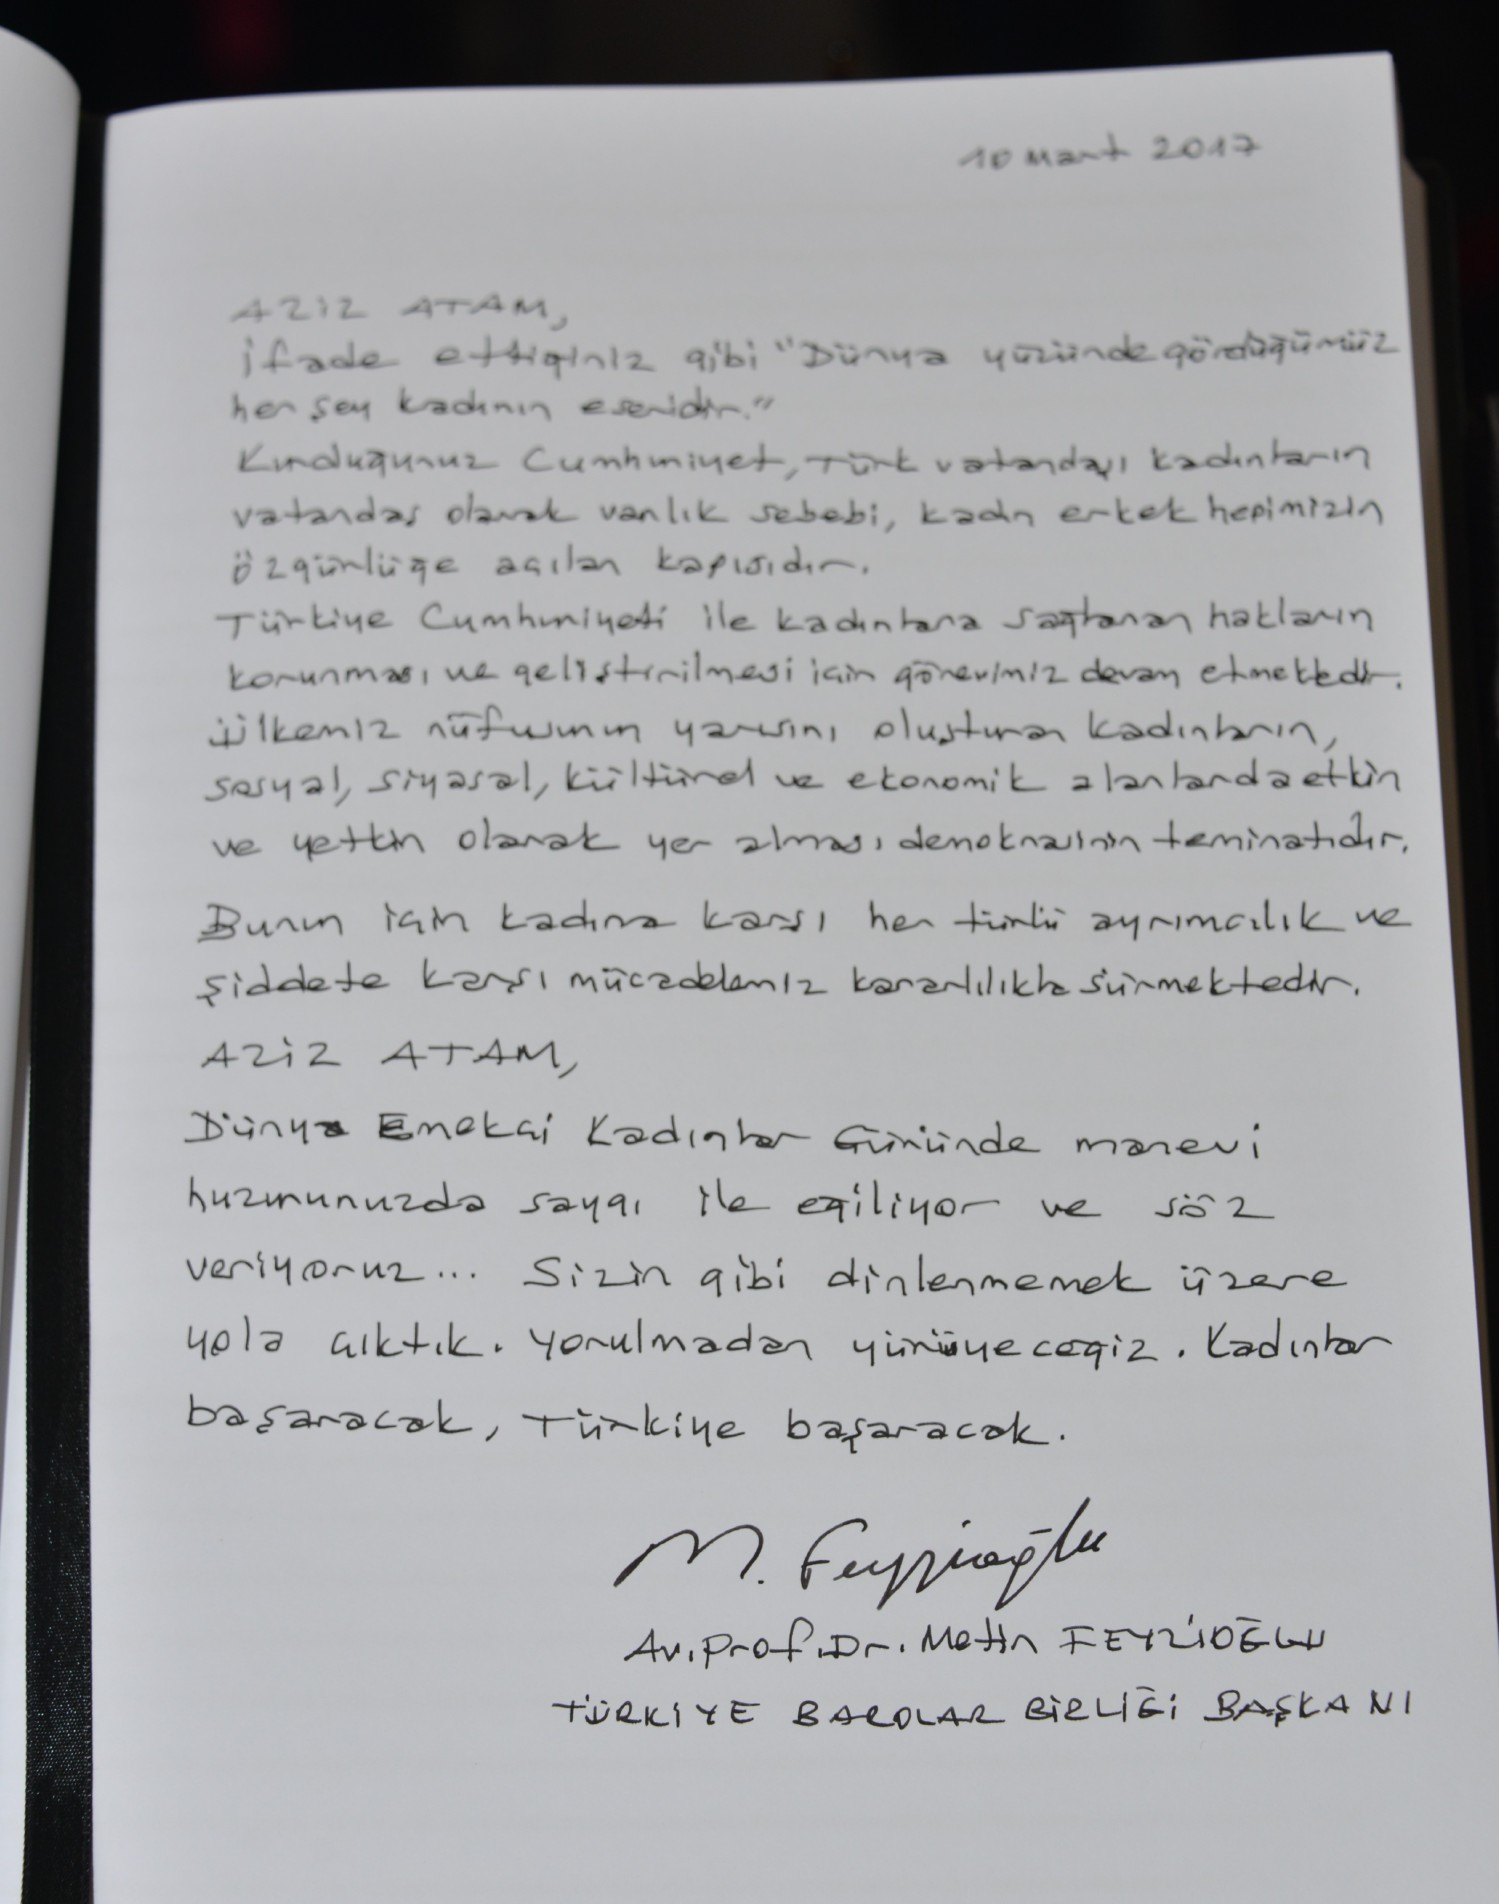 10 Mart 2017
AZİZ ATAM,
İfade ettiğiniz gibi "Dünya yüzünde gördüğümüz
her şey kadının eseridir."
Kurduğunuz Cumhuriyet, Türk vatandaşı kadınların
vatandaş olarak varlık sebebi, kadın erkek hepimizin
özgürlüğe açılan kapısıdır.
Türkiye Cumhuriyeti ile kadınlara sağlanan hakların
korunması ve geliştirilmesi için görevimiz devam etmektedir.
Ülkemiz nüfusunun yarısını oluşturan kadınların,
sosyal, siyasal, kültürel ve ekonomik alanlarda etkin
ve yetkin olarak yer alması demokrasinin teminatıdır.
Bunun için kadına karşı her türlü ayrımcılık ve
şiddete karşı mücadelemiz kararlılıkla sürmektedir.
AZİZ ATAM,
Dünya Emekçi Kadınlar Gününde manevi
huzurunuzda saygı ile eğiliyor ve söz
veriyoruz... Sizin gibi dinlenmemek üzere
yola çıktık. Yorulmadan yürüyeceğiz. Kadınlar
başaracak, Türkiye başaracak.
M. Feyzioğlu
Av. Prof. Dr. Metin FEYZİOĞLU
TÜRKİYE BAROLAR BİRLİĞİ BAŞKANI